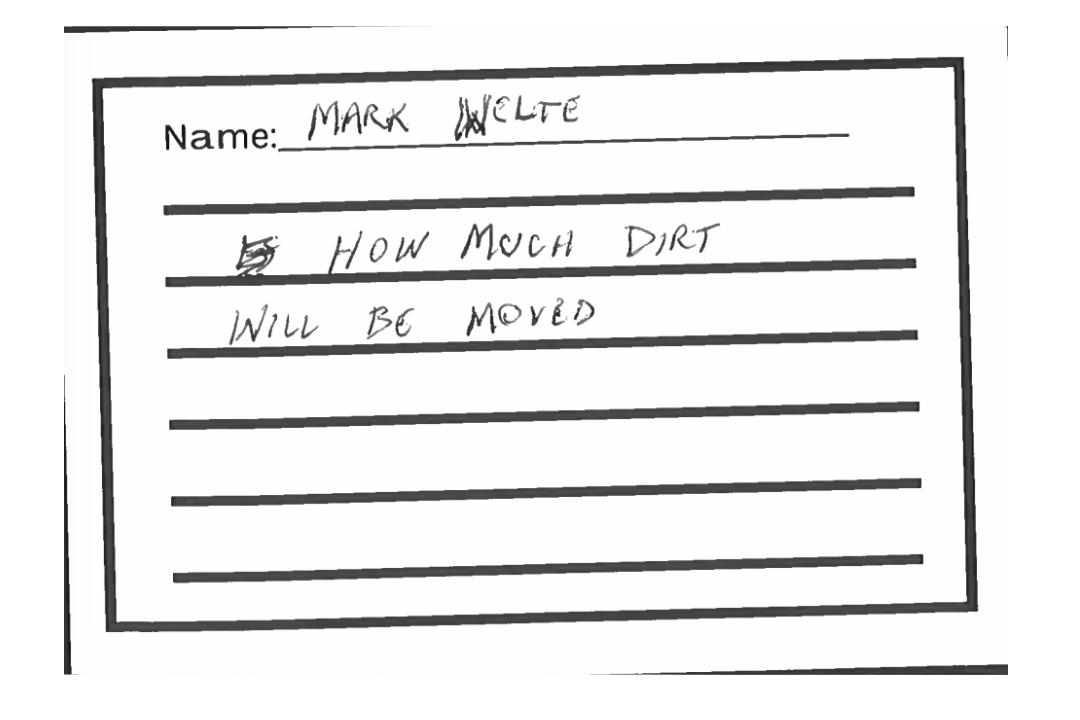 Name: MARK WELTE
HOW MUCH DIRT
WILL BE MOVED